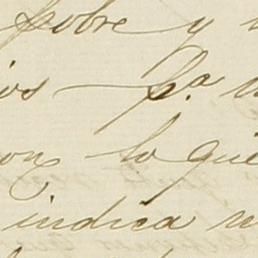 pobre y
ios — pª
on lo que
indica